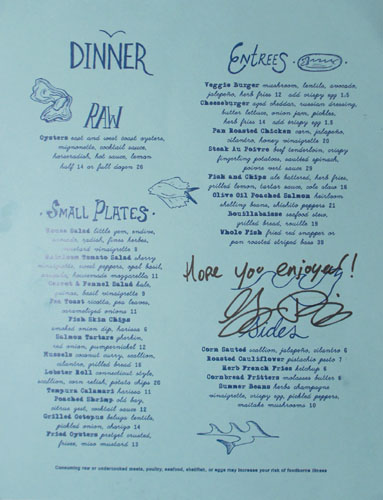 DINNER
RAW
Oysters east and west coast oysters,
mignonette, cocktail sauce,
horseradish, hot sauce, lemon
half 14 or full dozen 28
SMALL PLATES
House Salad little gem, endive,
avocado, radish, fines herbes,
mustard vinaigrette 8
Heirloom Tomato Salad cherry
vinaigrette, sweet peppers, opal basil,
homemade mozzarella 11
Carrot & Fennel Salad kale,
quinoa, basil vinaigrette 9
Pea Toast ricotta, pea leaves,
caramelized onions 11
Fish Skin Chips
smoked onion dip, harissa 6
Salmon Tartare gherkin,
red onion, pumpernickel 12
Mussels coconut curry, scallion,
cilantro, grilled bread 15
Lobster Roll connecticut style,
scallion, corn relish, potato chips 20
Tempura Calamari harissa 11
Poached Shrimp old bay,
citrus zest, cocktail sauce 12
Grilled Octopus beluga lentils,
pickled onion, chorizo 14
Fried Oysters pretzel crusted,
frisee, miso mustard 13
ENTREES
Veggie Burger mushroom, lentils, avocado,
jalapeño, herb fries 12 add crispy egg 1.5
Cheeseburger aged cheddar, russian dressing,
butter lettuce, onion jam, pickles,
herb fries 14 add crispy egg 1.5
Pan Roasted Chicken corn, jalapeño,
cilantro, honey vinaigrette 20
Steak Au Poivre beef tenderloin, crispy
fingerling potatoes, sautéed spinach,
poivre vert sauce 29
Fish and Chips ale battered, herb fries,
grilled lemon, tartar sauce, cole slaw 16
Olive Oil Poached Salmon heirloom
shelling beans, shishito peppers 21
Bouillabaisse seafood stew,
grilled bread, rouille 19
Whole Fish fried red snapper or
pan roasted striped bass 28
Hope you enjoyed!
Sides
Corn Sauted scallion, jalapeño, cilantro 6
Roasted Cauliflower pistachio pesto 7
Herb French Fries ketchup 6
Cornbread Fritters molasses butter 6
Summer Beans herbs champagne
vinaigrette, crispy egg, pickled peppers,
maitake mushrooms 10
Consuming raw or undercooked meats, poultry, seafood, shellfish, or eggs may increase your risk of foodborne illness